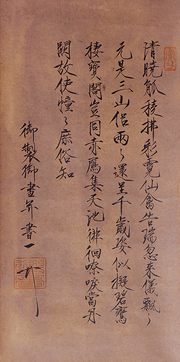 清曉觚稜拂彩霓仙禽告瑞忽來儀飄々
元是三山侶兩々還呈千歲姿似擬碧鸞
棲寶閣豈同赤鴈集天池徘徊嘹唳當丹
闕故使憧々庶俗知
御製御畫并書